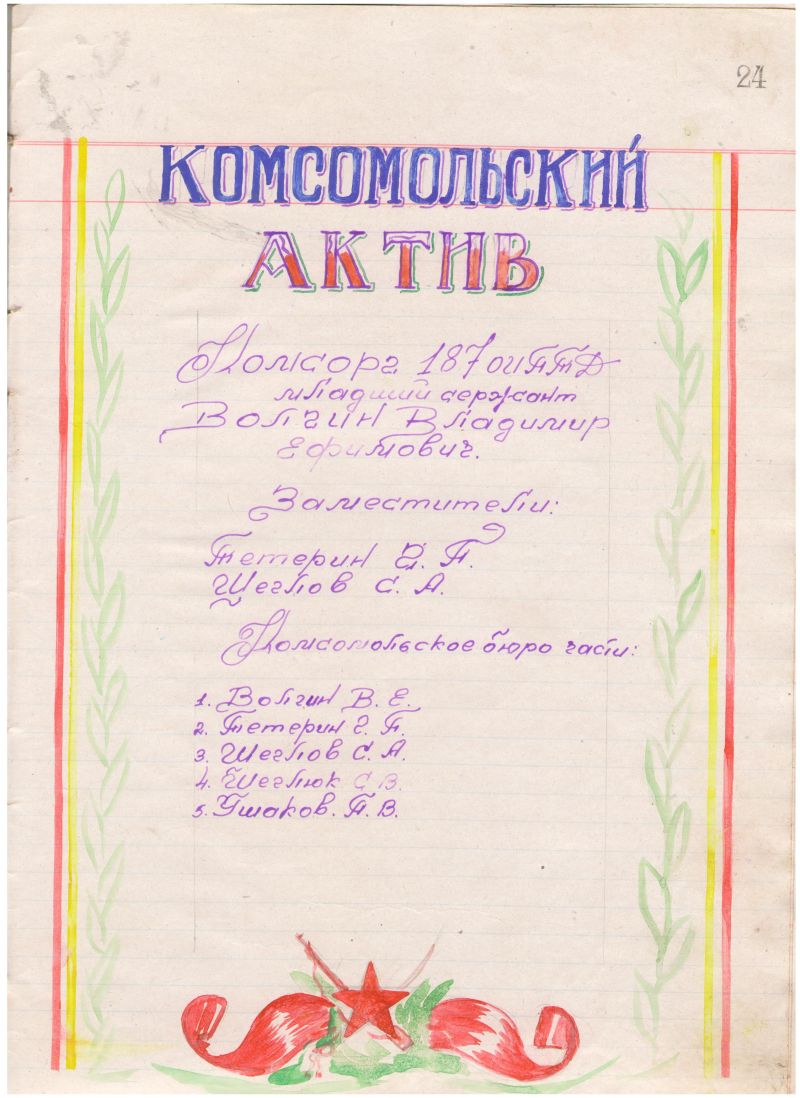 24
КОМСОМОЛЬСКИЙ
АКТИВ
Комсорг 187 ОИПТД
младший сержант
Волгин Владимир
Ефимович.
Заместители:
Тетерин Г. П.
Щеглов С. А.
Комсомольское бюро части:
1. Волгин В. Е.
2. Тетерин Г. П.
3. Щеглов С. А.
4. Щеглюк С. В.
5. Ушаков. П. В.